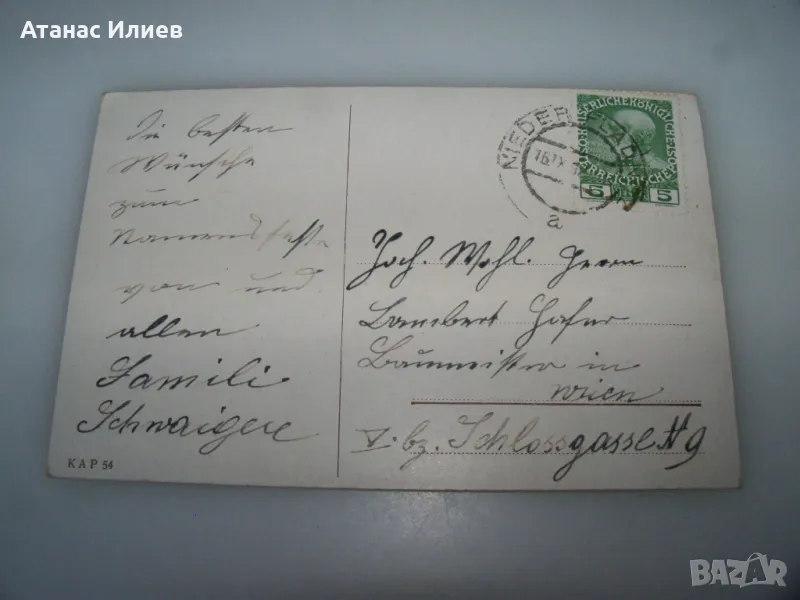 Атанас Илиев
Die besten
Wünsche
zum
Namensfeste
von und
allen
Familie
Schwaiger
KAP 54
NIEDER
16.IX
a
KAISERLICHEKÖNIGLICHE
OESTERREICHISCHE
5 5
Hoch. Wohl. Herrn
Lambert Hafner
Baumeister in
Wien
V. bz. Schlossgasse N 9
BAZAR